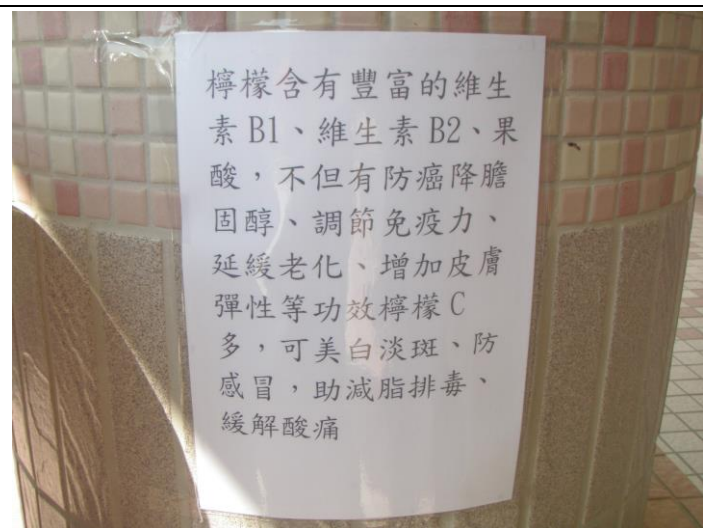 檸檬含有豐富的維生
素 B1、維生素 B2、果
酸，不但有防癌降膽
固醇、調節免疫力、
延緩老化、增加皮膚
彈性等功效檸檬 C
多，可美白淡斑、防
感冒，助減脂排毒、
緩解酸痛